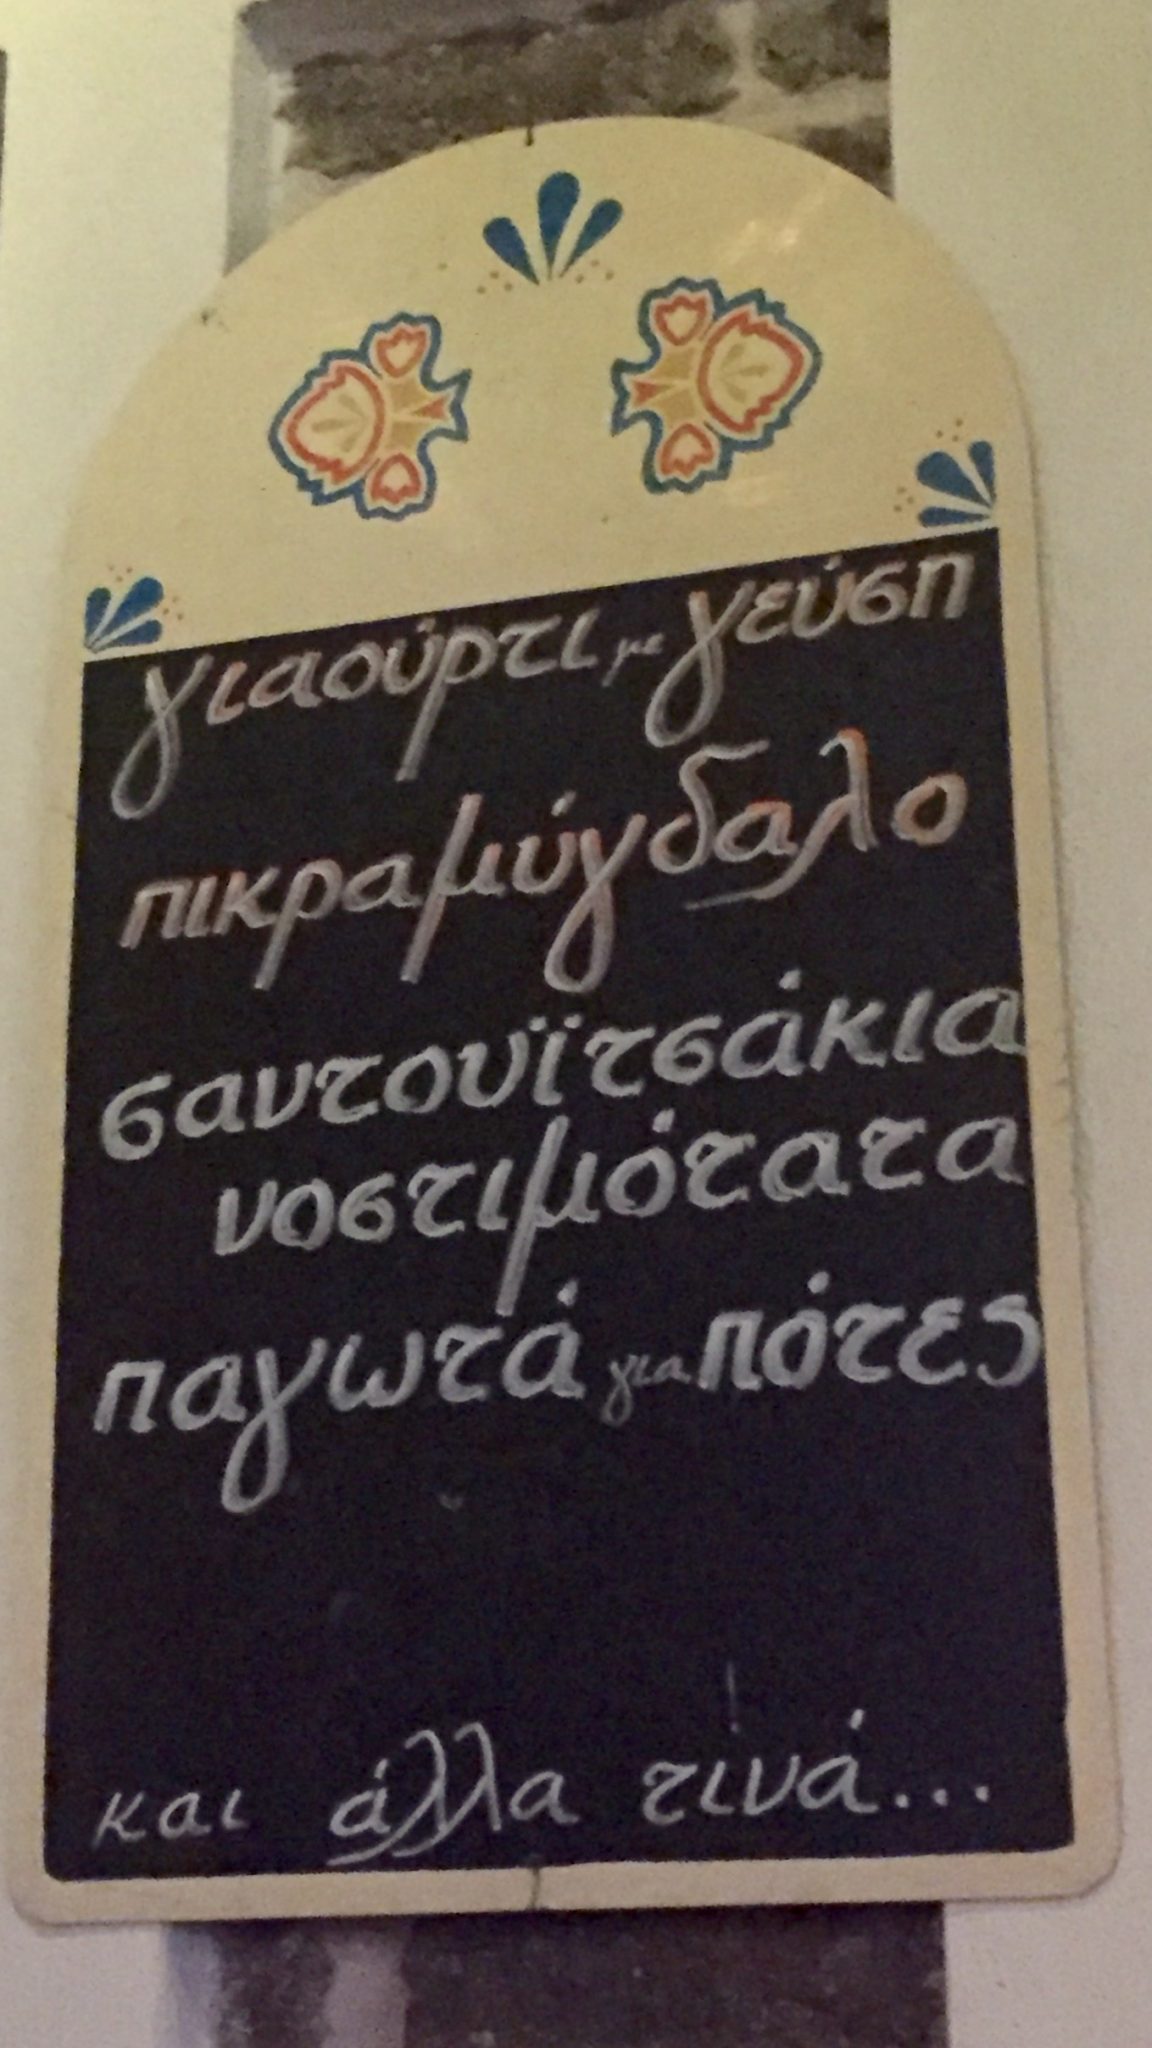 γιαούρτι με γεύση
πικραμύγδαλο
σαντουϊτσάκια
νοστιμότατα
παγωτά για πότες
και άλλα τινά...